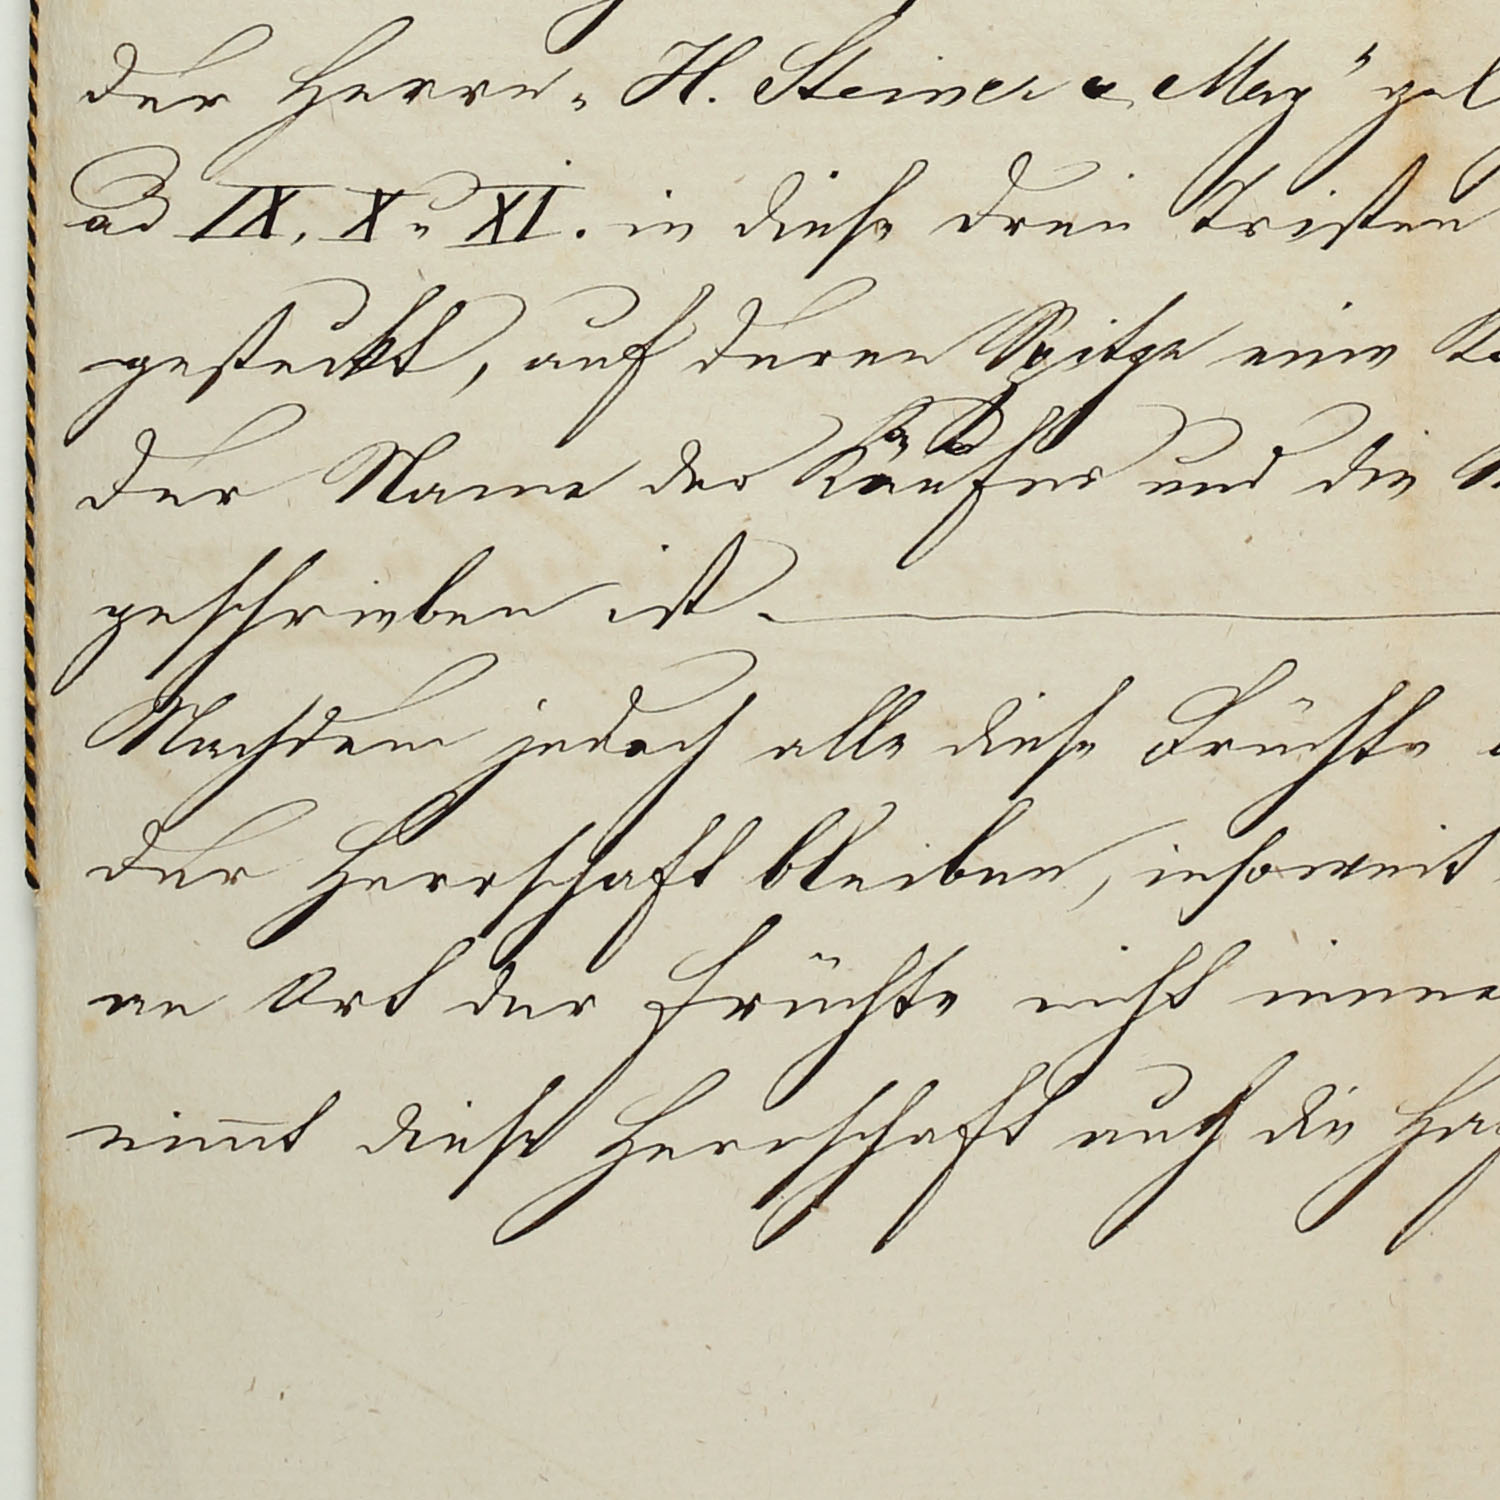 der Herrn „H. Steiner & May" gel
ad IX, X u XI. in diese drei Tristen
gesteckt, auf deren Spitze eine Ta
der Name des Käufers und die N
geschrieben ist.
Nachdem jedoch alle diese Früchte
der Herrschaft bleiben, insoweit
an Ort der Früchte nicht imme
nimmt diese Herrschaft auch die Ha